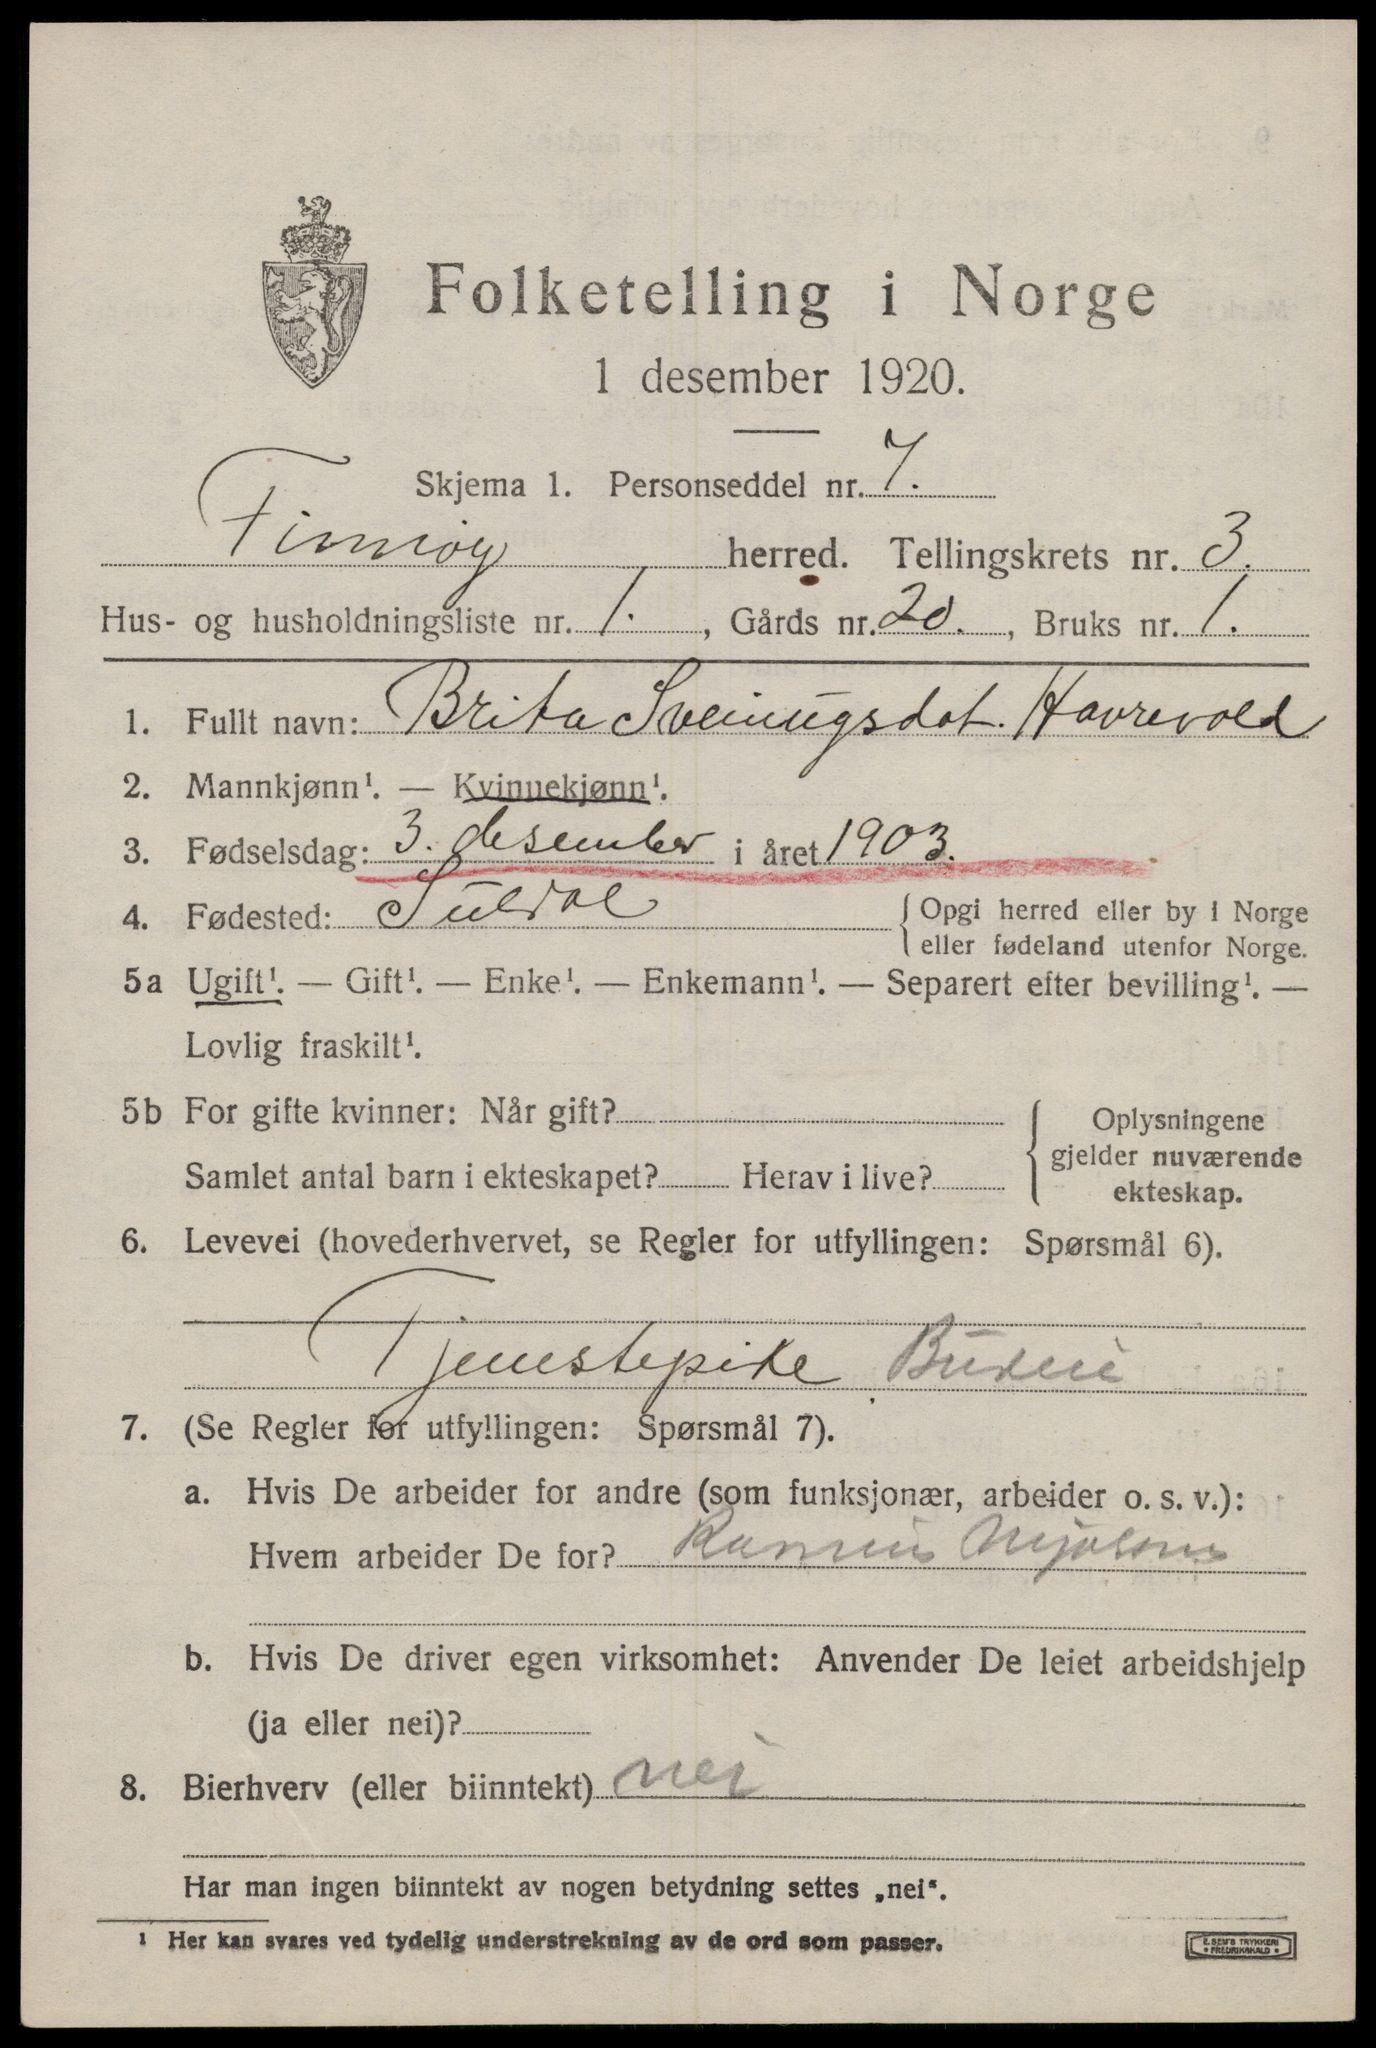 Folketelling i Norge
1 desember 1920.
Skjema 1. Personseddel nr. 7.
Finnøy herred. Tellingskrets nr. 3.
Hus- og husholdningsliste nr. 1. , Gårds nr. 20. , Bruks nr. 1.
1. Fullt navn: Brita Sveinugsdot. Havrevold
2. Mannkjønn¹. — Kvinnekjønn¹.
3. Fødselsdag: 3. desember i året 1903.
4. Fødested: Suldal
{ Opgi herred eller by i Norge
eller fødeland utenfor Norge.
5a Ugift¹. — Gift¹. — Enke¹. — Enkemann¹. — Separert efter bevilling¹. —
Lovlig fraskilt¹.
5b For gifte kvinner: Når gift?
Samlet antal barn i ekteskapet? Herav i live?
{ Oplysningene
gjelder nuværende
ekteskap.
6. Levevei (hovederhvervet, se Regler for utfyllingen: Spørsmål 6).
Tjenestepike Budeie
7. (Se Regler for utfyllingen: Spørsmål 7).
a. Hvis De arbeider for andre (som funksjonær, arbeider o. s. v.):
Hvem arbeider De for?
b. Hvis De driver egen virksomhet: Anvender De leiet arbeidshjelp
(ja eller nei)?
8. Bierhverv (eller biinntekt) nei
Har man ingen biinntekt av nogen betydning settes „nei“.
¹ Her kan svares ved tydelig understrekning av de ord som passer.
E. SEM'S TRYKKERI
• FREDRIKSHALD •